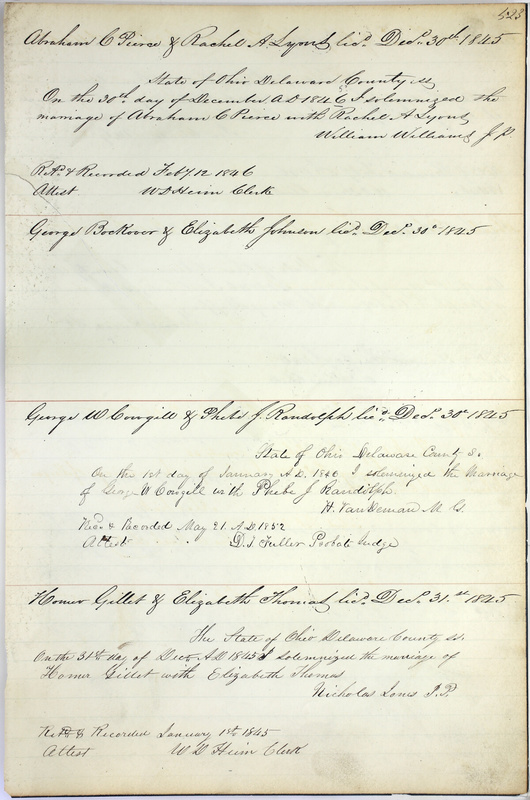 523
Abraham C Pierce & Rachel A. Lyons licd Decr. 30th 1845
State of Ohio Delaware County ss
On the 30th. day of December A D 1846 I solemnized the
marriage of Abraham C Pierce with Rachel A Lyons
William Williams J P
Retd. & Recorded Feby 12 1846
Attest W D Heim Clerk
George Bockover & Elizabeth Johnson licd. Decr. 30th 1845
George W Cowgill & Phebe J. Randolph licd. Decr. 30th 1845
State of Ohio Delaware County Ss
On the 1st day of January A.D. 1846 I solemnized the Marriage
of George W Cowgill with Phebe J Randolph.
H. VanDeman M. G.
Recd & Recorded May 21. A.D. 1852
Attest D. T. Fuller Probate Judge
Homer Gillet & Elizabeth Thomas licd. Decr. 31.st 1845
The State of Ohio Delaware County ss.
On the 31st day of Decr A.D. 1845 I solemnized the marriage of
Homer Gillet with Elizabeth Thomas
Nicholas Jones J.P.
Retd & Recorded January 1st 1845
Attest W D Heim Clerk